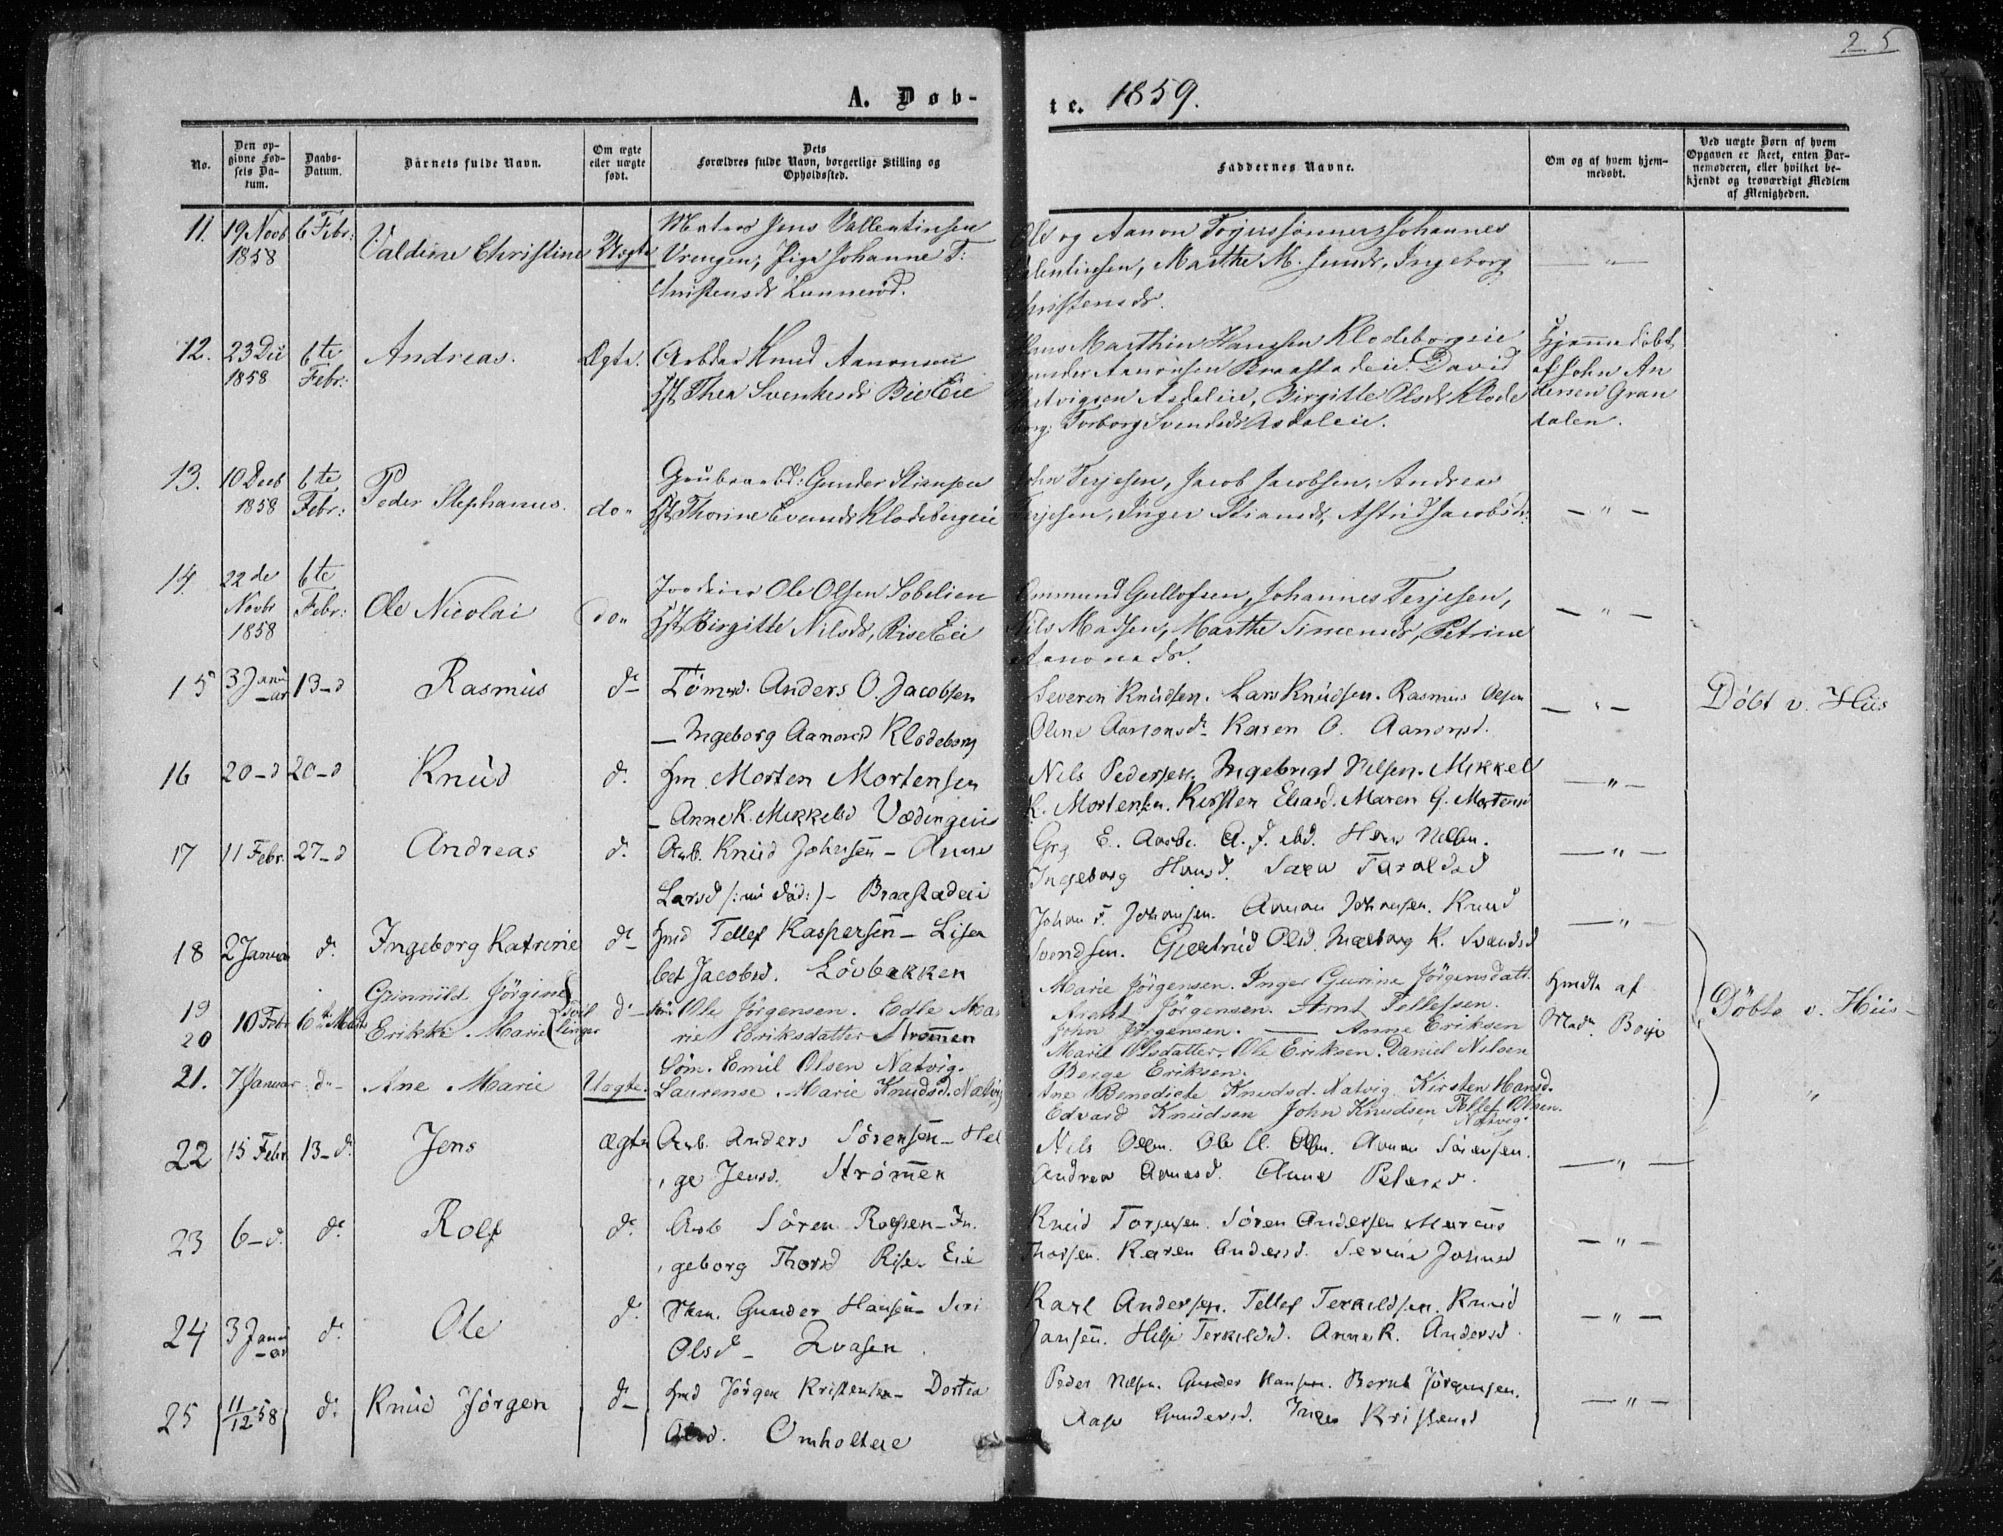 25
A. Døb-
te. 1859.
No.
Den op-
givne Fød-
sels Da-
tum.
Daabs-
Datum.
Barnets fulde Navn.
Om ægte
eller uægte
født.
Dets
Forældres fulde Navn, borgerlige Stilling og
Opholdssted.
Faddernes Navne.
Om og af hvem hjem-
medøbt.
Ved uægte Børn af hvem
Opgaven er skeet, enten Bar-
nemoderen, eller hvilket be-
kjendt og troværdigt Medlem
af Menigheden.
11. 19 Novb 6 Febr: Valdine Christine Uægte Matros Jens Vallentinsen
1858 Vrengen, Pige Johanne T:
Christensdr Lunnerød.
Ole og Aanon Tojerssønner, Johannes
Valentinsen, Marthe M. Jensdr, Ingeborg
Christensdr.
12. 23 De 6te Andreas. Ægte. Arbdar Knud Aanonsen
1858 Febr: Hst Thea Svenkesdr Bie Eie
Hans Marthin Hansen Klodeborgeie
Gunder Aanonsen Braastadeie. David
Asdaleie, Birgitte Olsdr Klode
borg. Torborg Svendsdr Asdaleie.
Hjemmedøbt
af John An
dersen Gran
dalen.
13. 10 Decb 6te Peder Stephanus. do" Grubearbd: Gunder Stiansen
1858 Febr: Hst Thorine Evensdr Klodeborgeie
John Terjesen, Jacob Jacobsen, Andreas
Terjesen, Inger Stiansdr, Astrid Jacobsdr. — " —
14. 22de 6te Ole Nicolai do" Inderst Ole Olsen Løbelien
Novbr Febr: Hst Birgitte Nilsdr, Rise Eie
1858
Ommund Gullofsen, Johannes Terjesen,
Nils Madsen, Marthe Simensdr, Petrine
Aanonsdr. — " —
15 3 Janu 13-d Rasmus do- Tømrd. Anders O. Jacobsen
-ar — Ingeborg Aanonsd Klodeborg
Severin Knudsen. Lars Knudsen. Rasmus Olsen
Oline Aanonsdr Karen O. Aanonsd. — " — Døbt v. Hüs
16 20-d 20-d Knud do. Hm. Morten Mortensen
— Anne K. Mikkelsd Vædingeie
Nils Pedersen. Ingebrigt Nilsen. Mikkel
K. Mortensen. Kirsten Eliasd. Maren G. Mortensd — " —
17 11 Febr. 27-d Andreas do. Arb. Knud Johnsen — Anne
Larsd /: nu død :/ — Braastadeie
Grg E. Aasbr. A. J. ibd. Hans Nilsen.
Ingeborg Hansd. Sara Taraldsd — " —
18 2 Januar do. Ingeborg Katrine do- Hmd Tellef Kaspersen — Lisa
bet Jacobsd. Løvbakken
Johan F. Johansen. Aanon Johnsen. Knud
Svendsen. Gjertrud Olsd. Ingeborg K. Svendsd — " —
19 Gunnild Jørgine Tvil
20 10 Febr 6te Marts Erikke Marie linger do- Ole Jørgensen. Edle Ma
rie Eriksdatter Strømmen
Marie Jørgensen. Inger Gurine Jørgensdatt.
Arent Jørgensen. Arnt Tellefsen.
John Jørgensen. — Anne Eriksen
Marie Olsdatter. Ole Eriksen. Daniel Nilsen
Berge Eriksen.
Hmdte af
Mad. Boije
Døbte v. Hüs-
21. 7 Januar do- Ane Marie Uægte. Søm. Emil Olsen Natvig.
Laurense Marie Knudsd. Natvig
Ane Benedicte Knudsd. Natvig Kirsten Hansd.
Edvard Knudsen John Knudsen Tellef Olsen.
Natvig. "
22 15 Febr 13-d. Jens ægte Arb. Anders Sørensen — Hel
ge Jensd. Strømmen
Nils Olsen. Ole A. Olsen. Aanon Sørensen.
Andrea Aanosd. Anne Petersd. — " —
23 6-d. do. Rolf do. Arb Søren Rolfsen — In.
geborg Thorsd Rise Eie
Knud Torjusen. Søren Andersen Marcus
Thorsen. Karen Andersd. Serine Johnsd — " —
24 3 Janu do. Ole do. Skm. Gunder Hansen — Siri
-ar Olsd — Kvasen.
Karl Andersen. Tellef Terkildsen. Knud
Jansen. Helje Terkildsd. Anne K. Andersd. — " —
25 11/12 58 do. Knud Jørgen do- Hmd Jørgen Kristensen — Dortea
Olsd. Omholteie
Peder Nilsen. Gunder Hansen. Bernt Jørgensen.
Aase Gundersd. Inger Kristensd — " —